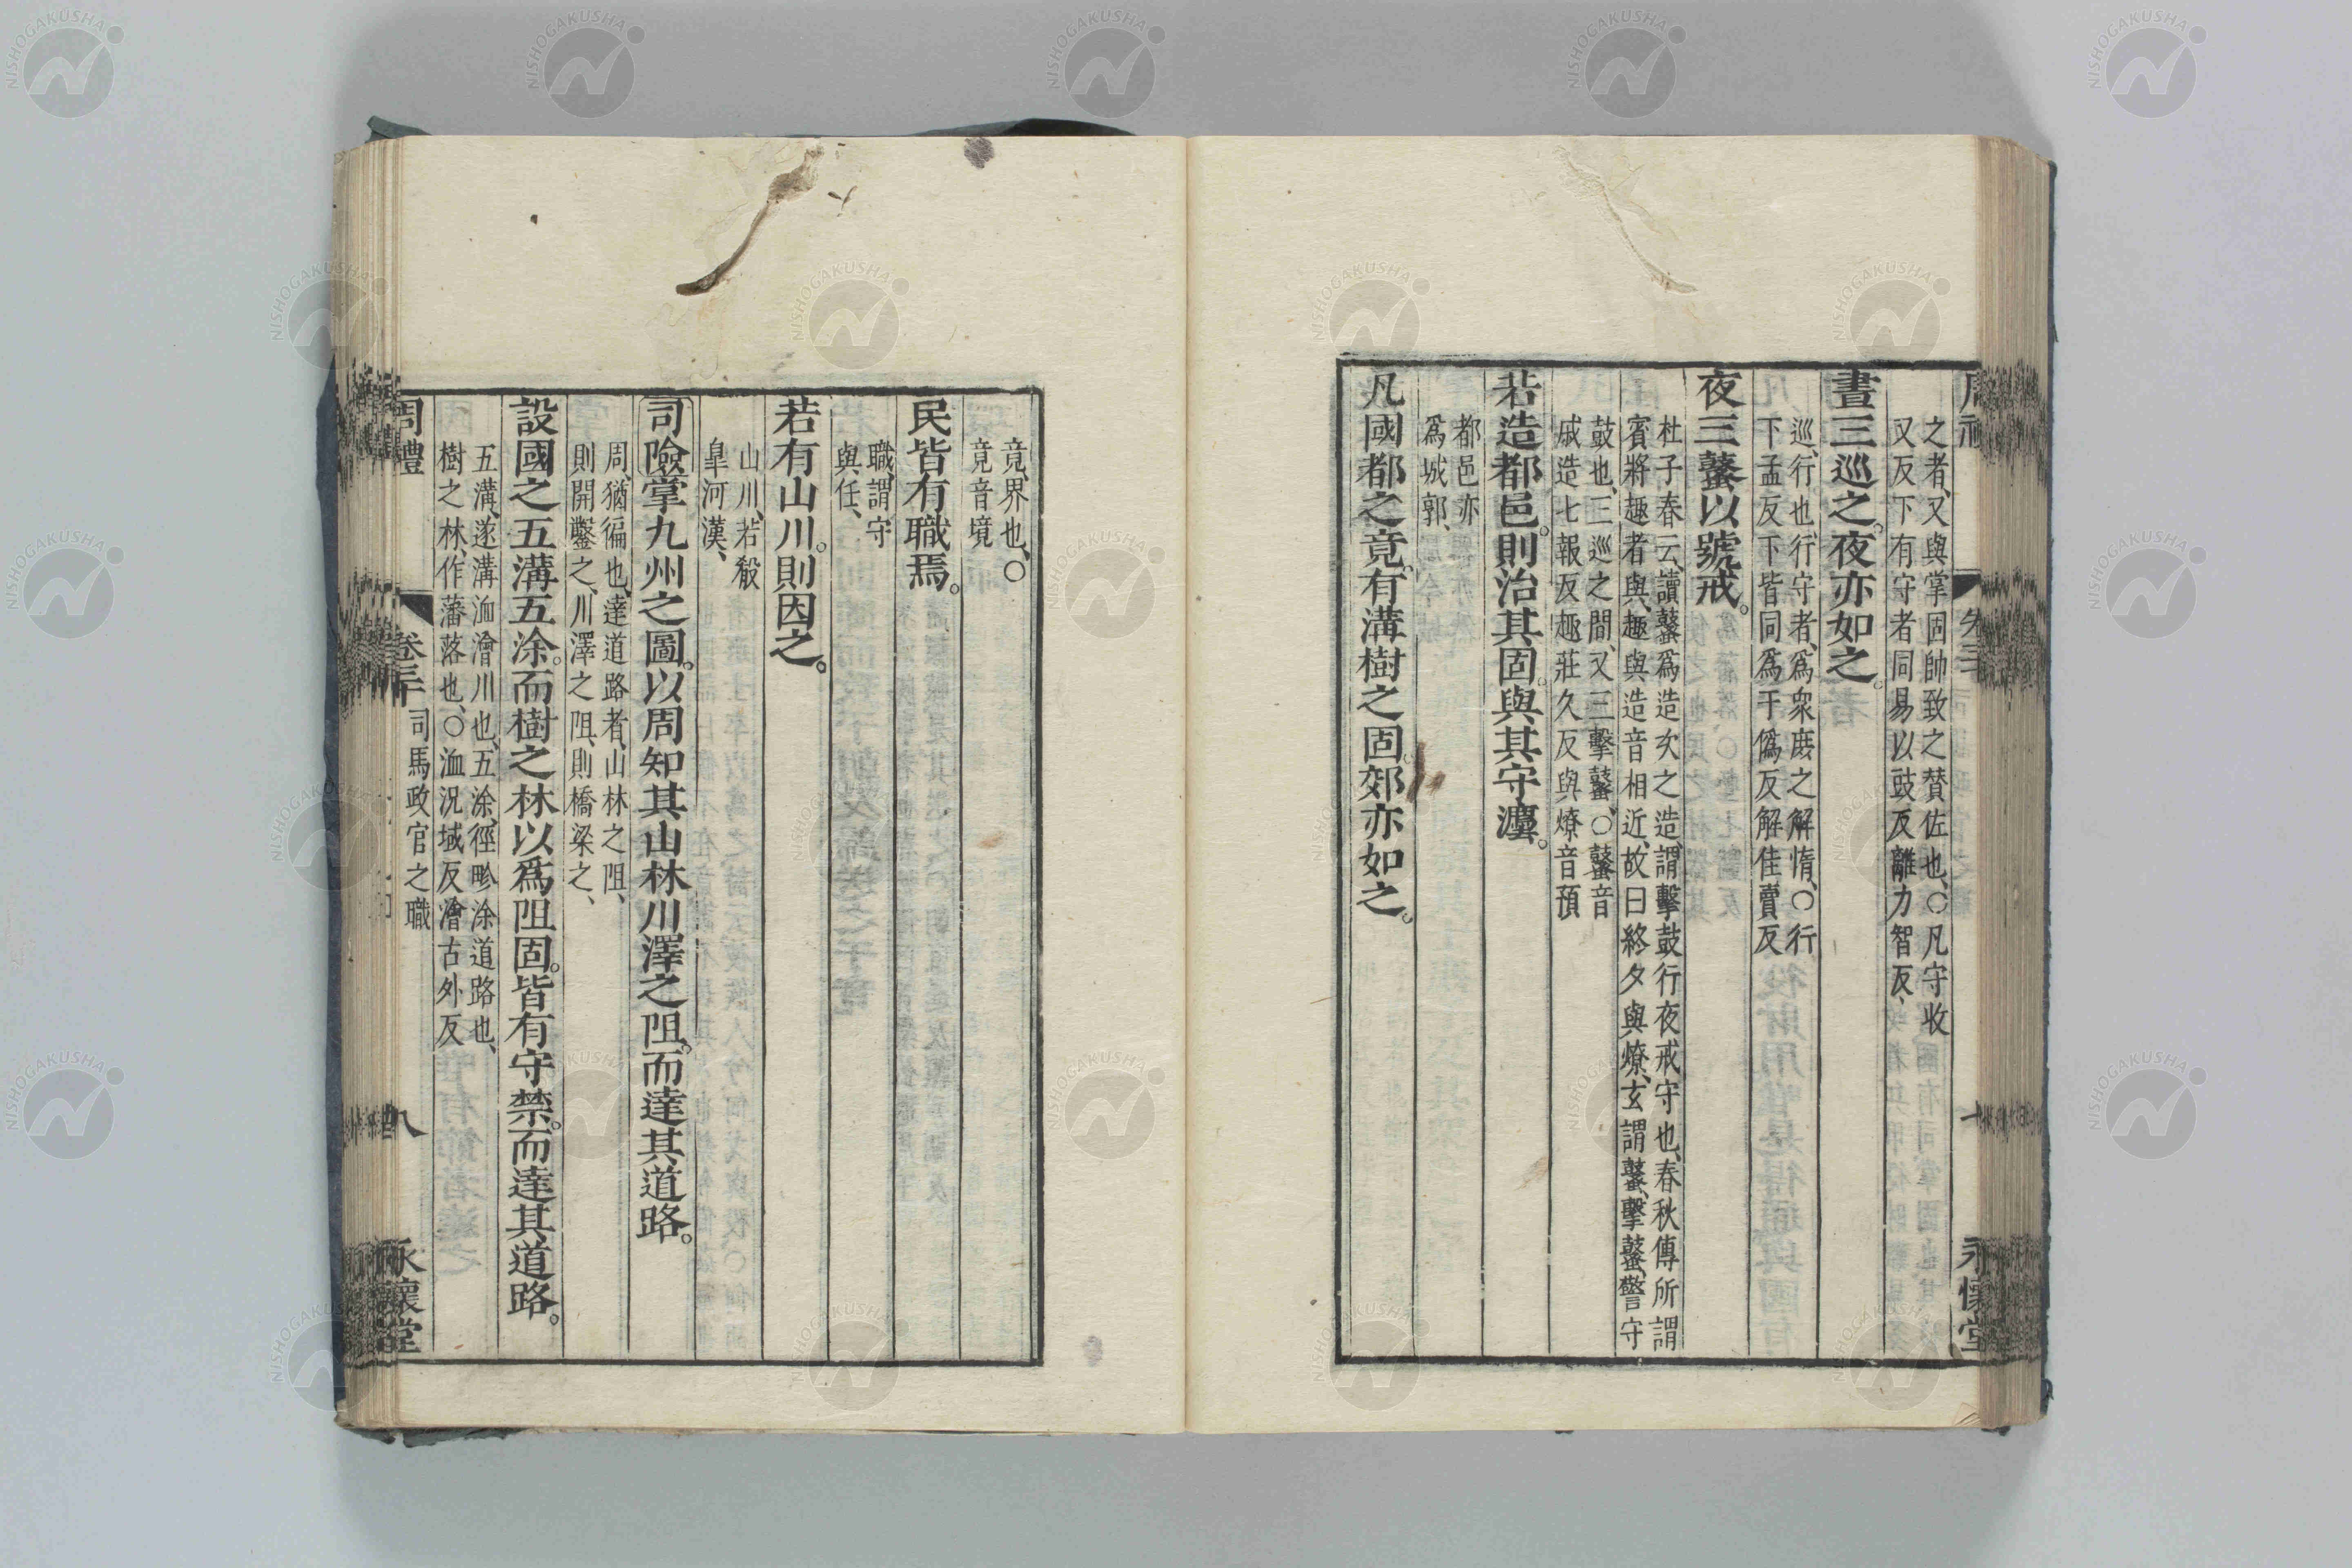 之者、又與掌固帥致之贊佐也、〇凡守收
又反下有守者同易以豉反離力智反、
晝三巡之。夜亦如之。
巡、行也、行守者、爲衆庶之解惰、〇行
下孟反下皆同爲于僞反解佳賣反
夜三鼜以號戒。
杜子春云、讀鼜爲造次之造、謂擊鼓行夜戒守也、春秋傳所謂
賓將趣者與、趣與造音相近、故曰終夕與燎、玄謂鼜、擊鼜、警守
鼓也、三巡之間、又三擊鼜、〇鼜音
戚造七報反趣莊久反與燎音預
若造都邑。則治其固。與其守灋。
都邑亦
爲城郭、
凡國都之竟。有溝樹之固。郊亦如之。
永懷堂
竟、界也、〇
竟音境
民皆有職焉。
職、謂守
與任、
若有山川。則因之。
山川、若殽
皐河漢、
司險掌九州之圖。以周知其山林川澤之阻。而達其道路。
周、猶徧也、達道路者、山林之阻、
則開鑿之、川澤之阻、則橋梁之、
設國之五溝五涂。而樹之林以爲阻固。皆有守禁。而達其道路。
五溝、遂溝洫澮川也、五涂、徑畛涂道路也、
樹之林、作藩落也、〇洫況域反澮古外反
周禮 卷三十 司馬政官之職 八 永懷堂